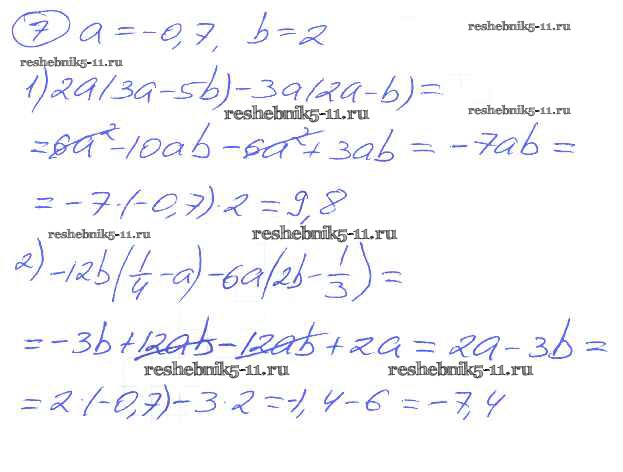 7 a = -0,7, b = 2
reshebnik5-11.ru
reshebnik5-11.ru
1) 2a(3a-5b)-3a(2a-b)=
reshebnik5-11.ru
reshebnik5-11.ru
=6a²-10ab-6a²+3ab = -7ab =
= -7·(-0,7)·2 = 9,8
reshebnik5-11.ru
reshebnik5-11.ru
2) -12b(1/4-a)-6a(2b-1/3)=
= -3b+12ab-12ab+2a = 2a-3b =
reshebnik5-11.ru
reshebnik5-11.ru
= 2·(-0,7)-3·2 = -1,4-6 = -7,4